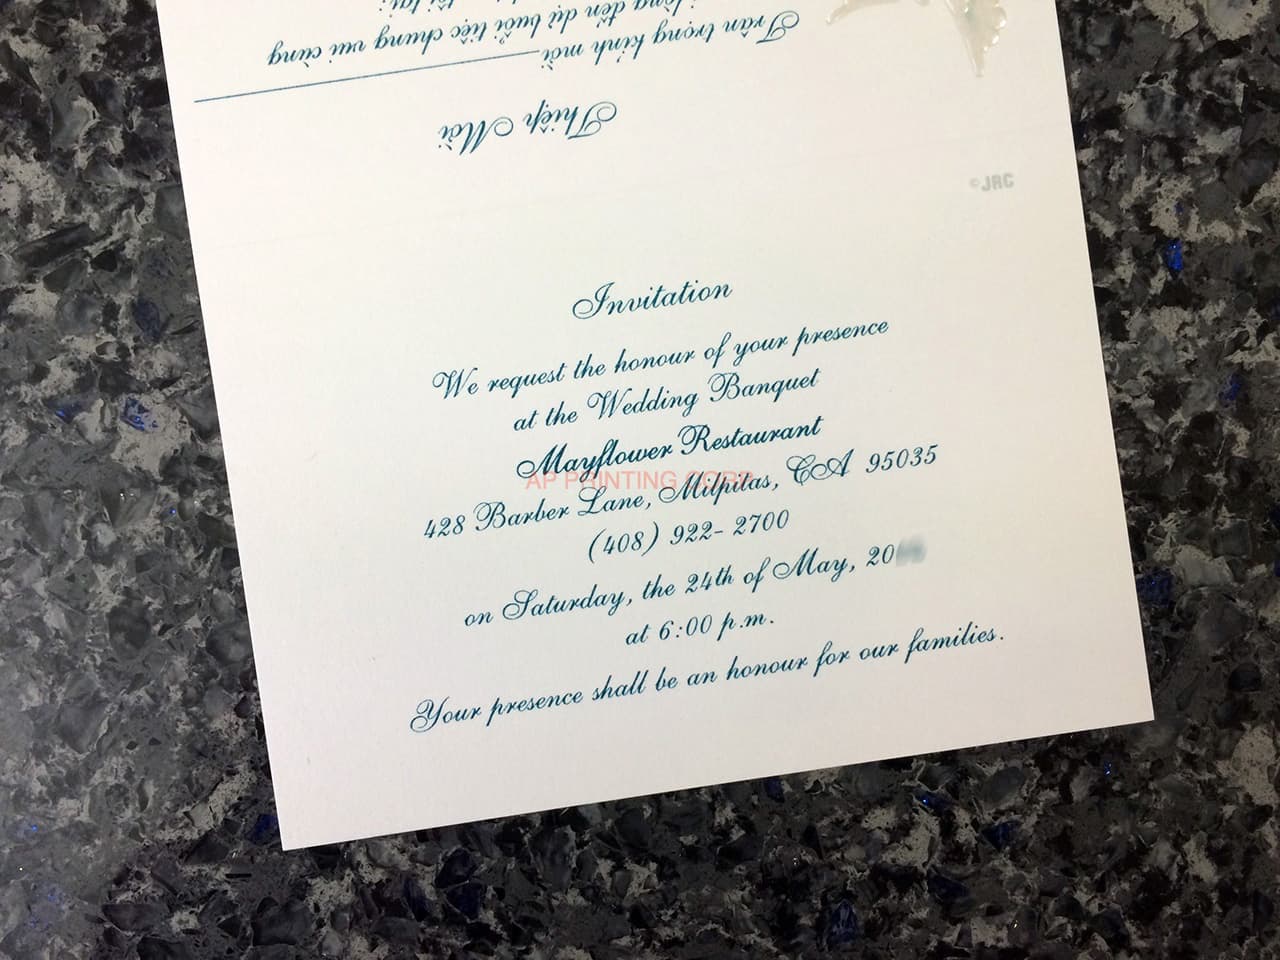 Thiệp Mời
Trân trọng kính mời
đến dự buổi tiệc chung vui cùng
©JRC
Invitation
We request the honour of your presence
at the Wedding Banquet
Mayflower Restaurant
AP PRINTING CORP
428 Barber Lane, Milpitas, CA 95035
(408) 922- 2700
on Saturday, the 24th of May, 20
at 6:00 p.m.
Your presence shall be an honour for our families.